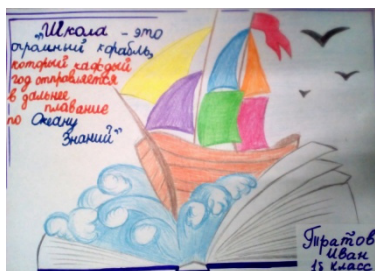 „Школа - это
огромный корабль,
который каждый
год отправляется
в дальнее
плавание
по Океану
Знаний"
Пиратов
Иван
1б класс